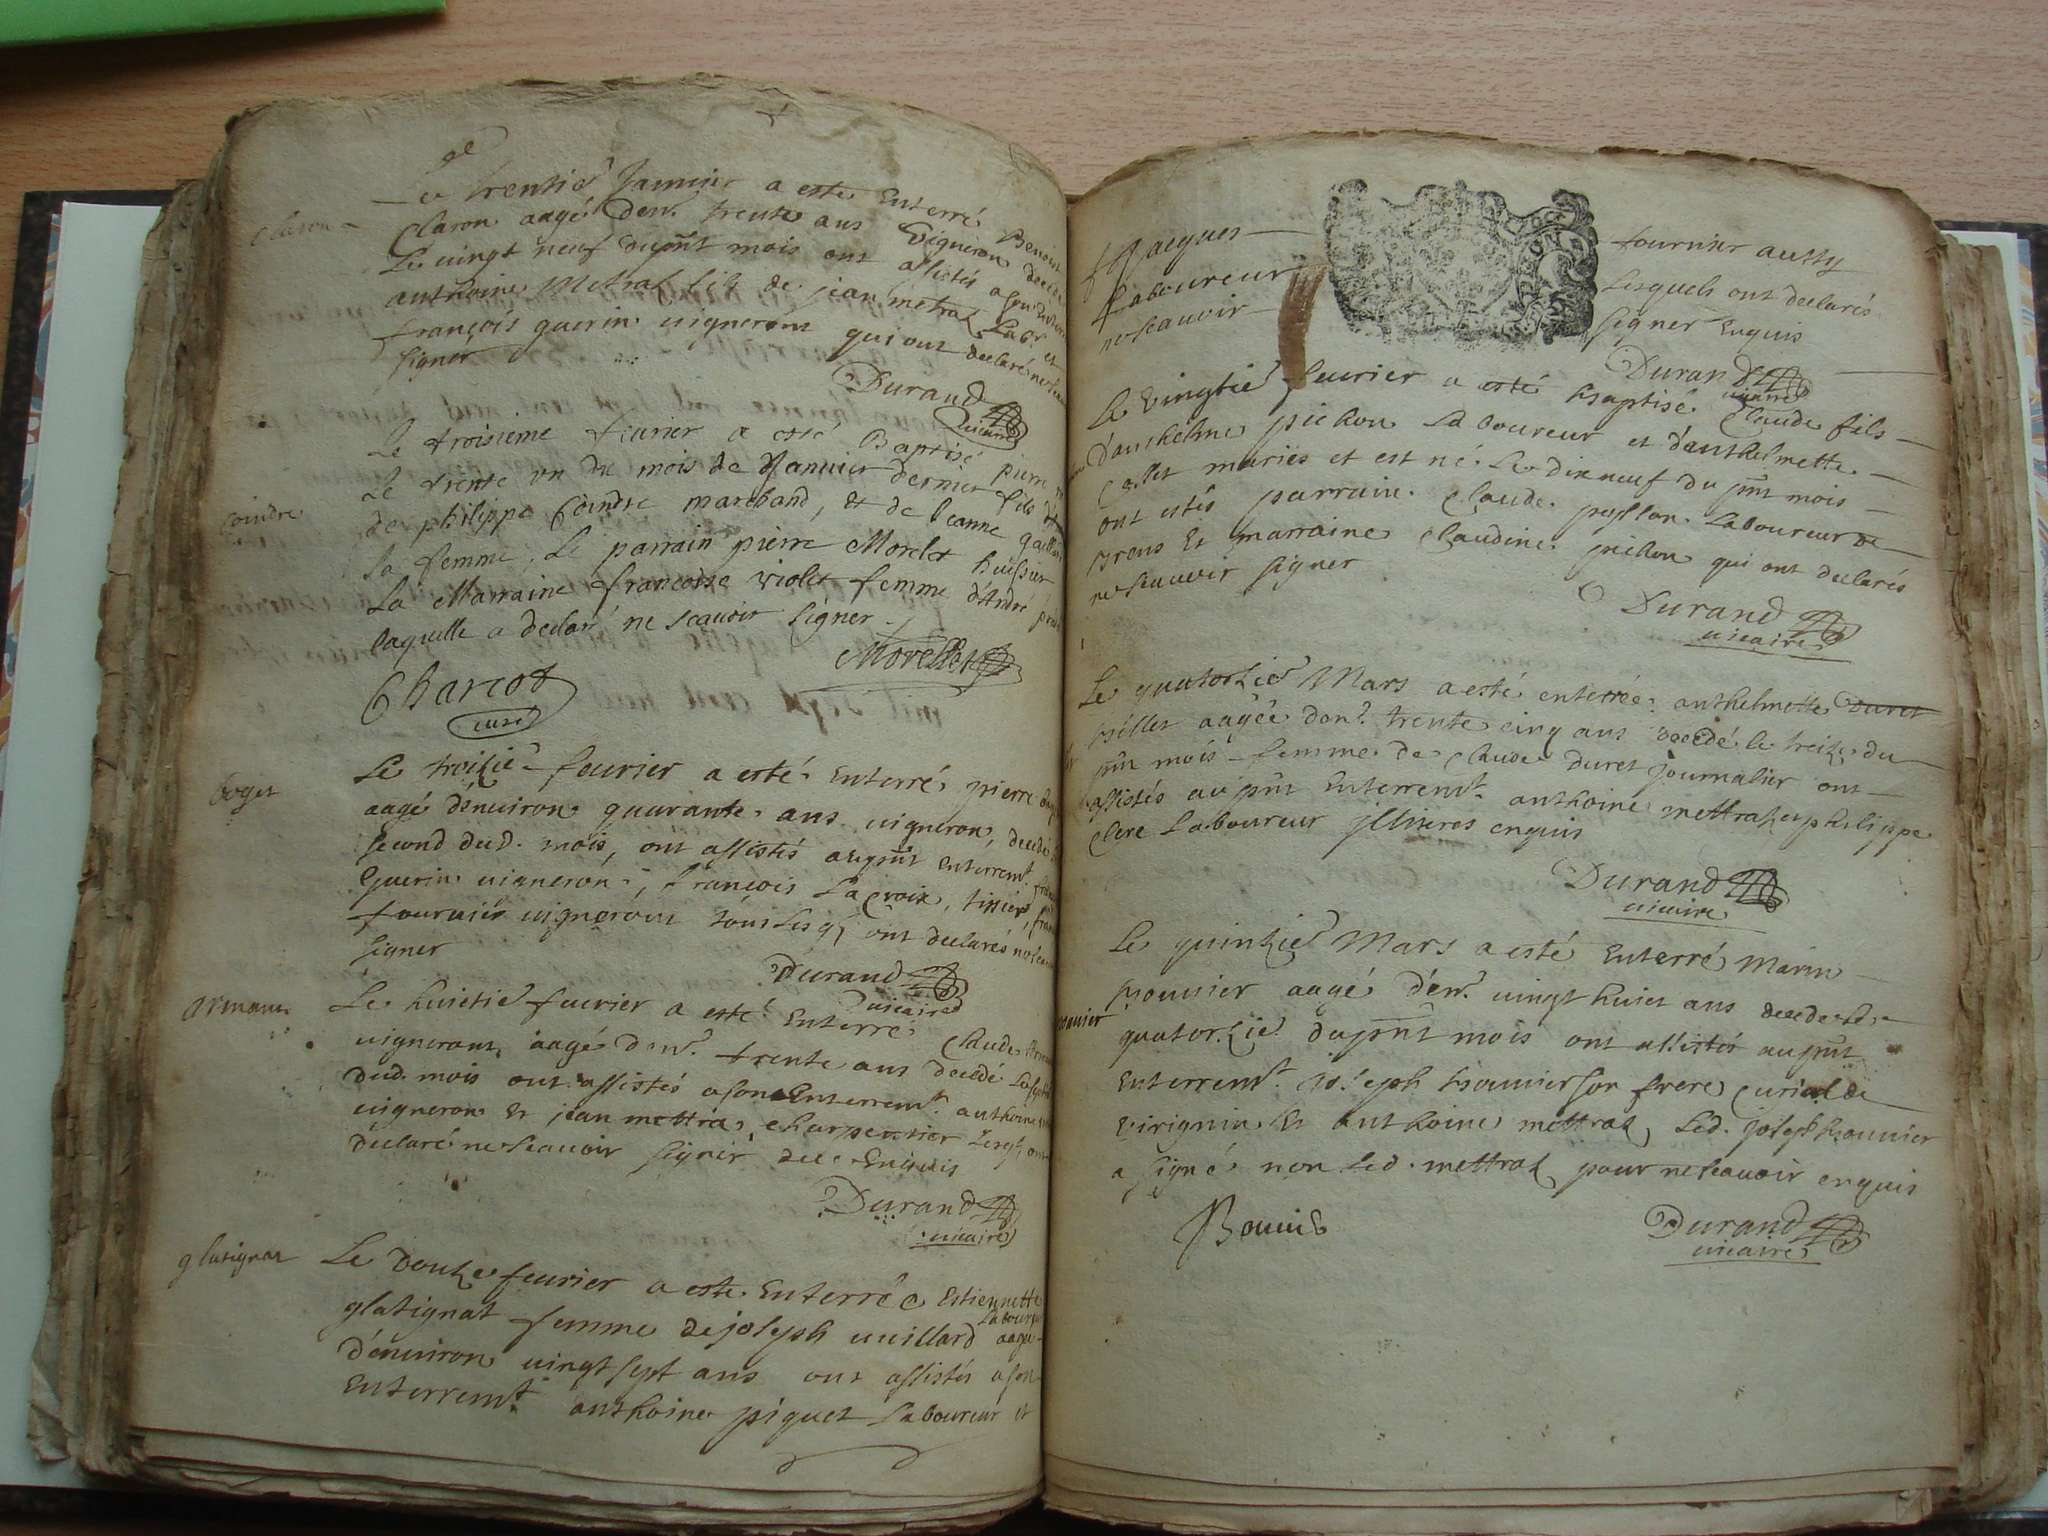 Le trentie Januier a esté Enterré Benoist
Claron
Claron aagé den. trente ans Vigneron decedé
Le vingt neuf dupnt mois ont assistés a son
anthoine Metral fils de jean metral Labr et
françois guerin uignerons qui ont declaré ne
signer
Durand
uicaire
Le troisieme feurier a esté Baptisé pierre
Le trente vn du mois de Januier dernier fils
Coindre
de philippe Coindre marchand, et de Jeanne
sa femme, Le parrain pierre Morelet huissier
La Marraine françoise violet femme d'André
laquelle a declaré ne scauoir signer.
Morellet
Charcot
curé
Le troizie feurier a esté Enterré pierre
boget
aagé d'enuiron quarante ans uigneron, decedé
second dud. mois, ont assistés aupnt Enterremt
Guerin uigneron, françois La Croix, tissier,
fournier uignerons tous lesqls ont declarés ne
signer
Durand
uicaire
Le huictie feurier a esté Enterré Claude
armant
uigneron, aagé den. trente ans decedé Le
dud. mois ont assistés a son Enterremt. anthoine
uigneron Et jean mettra, charpentier Lesqls ont
declaré ne scauoir signer de ce Enquis
Durand
uicaire
glatignat
Le Douze feurier a esté Enterrée Estiennette
glatignat femme de joseph uuillard Laboureur aagée
d'enuiron uingt sept ans ont assistés a son
Enterremt anthoine piquet Laboureur et
Jacques fournier aussy
Laboureur Lesquels ont declarés
ne scauoir signer Enquis
Durand
uicaire
Le Vingtie feurier a esté baptisé Claude fils
d'anthelme pichon Laboureur et d'anthelmette
Callet mariés et est né Le dixneuf du pnt mois
ont estés parrain Claude Laboureur de
Brens Et marraine Claudine pichon qui ont declarés
ne scauoir signer
Durand
uicaire
Le quatorzie Mars a esté enterrée anthelmette Duret
billet aagée den. trente cinq ans decedé le treize du
pnt mois femme de Claude Duret journalier ont
assistés aupnt Enterremt. anthoine mettral et philippe
Clere Laboureur illiteres enquis
Durand
uicaire
Le quinzie Mars a esté Enterré Marin
bouuier aagé d'en. uingt huict ans decedé le
bouuier
quatorzie dupnt mois ont assistés aupnt
Enterremt. Joseph bouuier son frere Curial de
Virignin Et anthoine mettral, Led. joseph bouuier
a signé non Led. mettral pour ne scauoir enquis
Bouuié
Durand
uicaire